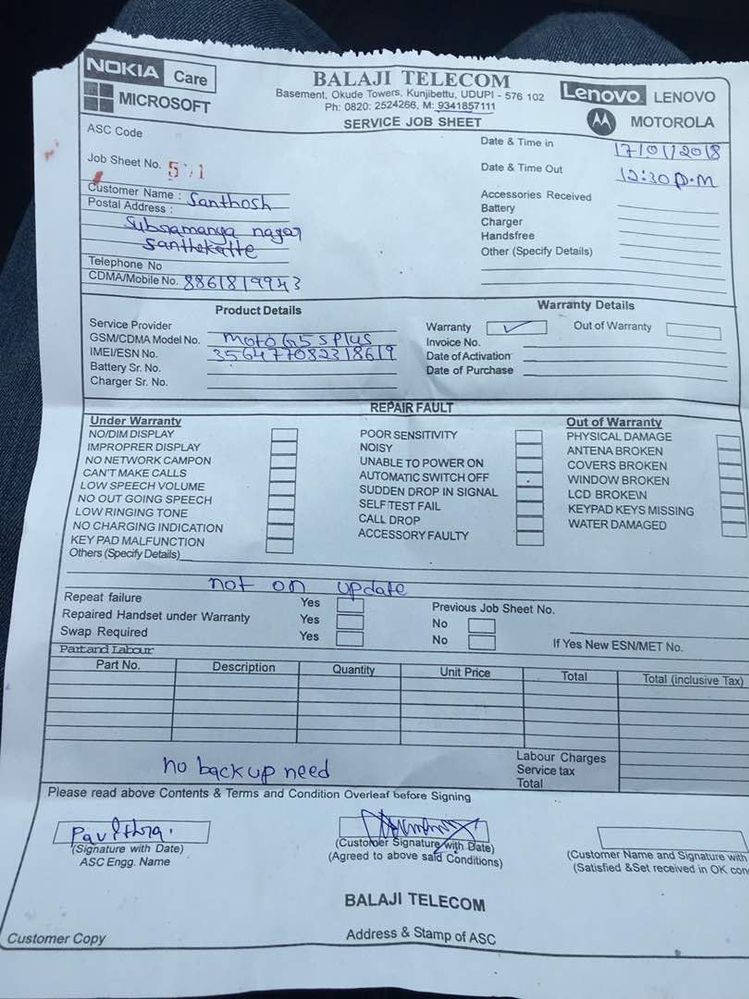 NOKIA Care
MICROSOFT
BALAJI TELECOM
Basement, Okude Towers, Kunjibettu, UDUPI - 576 102
Ph: 0820: 2524266, M: 9341857111
SERVICE JOB SHEET
Lenovo LENOVO
MOTOROLA
ASC Code
Job Sheet No.
Date & Time in 17/01/2018
Date & Time Out 12:30 P.M
Customer Name : Santhosh
Postal Address :
Subramanya nagar
Santhekatte
Telephone No
CDMA/Mobile No. 8861819943
Accessories Received
Battery
Charger
Handsfree
Other (Specify Details)
Product Details
Service Provider
GSM/CDMA Model No. Moto G5 S Plus
IMEI/ESN No. 356477082318619
Battery Sr. No.
Charger Sr. No.
Warranty Details
Warranty ✓ Out of Warranty
Invoice No.
Date of Activation
Date of Purchase
REPAIR FAULT
Under Warranty
NO/DIM DISPLAY
IMPROPRER DISPLAY
NO NETWORK CAMPON
CAN'T MAKE CALLS
LOW SPEECH VOLUME
NO OUT GOING SPEECH
LOW RINGING TONE
NO CHARGING INDICATION
KEY PAD MALFUNCTION
Others (Specify Details)
POOR SENSITIVITY
NOISY
UNABLE TO POWER ON
AUTOMATIC SWITCH OFF
SUDDEN DROP IN SIGNAL
SELF TEST FAIL
CALL DROP
ACCESSORY FAULTY
Out of Warranty
PHYSICAL DAMAGE
ANTENA BROKEN
COVERS BROKEN
WINDOW BROKEN
LCD BROKEN
KEYPAD KEYS MISSING
WATER DAMAGED
not on update
Repeat failure Yes Previous Job Sheet No.
Repaired Handset under Warranty Yes No
Swap Required Yes No If Yes New ESN/MET No.
Part and Labour
Part No. Description Quantity Unit Price Total Total (inclusive Tax)
no backup need
Labour Charges
Service tax
Total
Please read above Contents & Terms and Condition Overleaf before Signing
Pavithra.
(Signature with Date)
ASC Engg. Name
(Customer Signature with Date)
(Agreed to above said Conditions)
(Customer Name and Signature with
(Satisfied &Set received in OK con
BALAJI TELECOM
Address & Stamp of ASC
Customer Copy